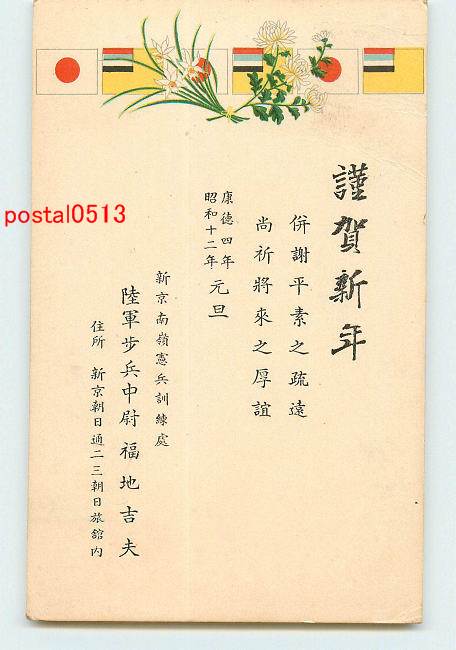 謹賀新年
併謝平素之疏遠
尚祈將來之厚誼
康德四年
昭和十二年
元旦
新京南嶺憲兵訓練處
陸軍步兵中尉 福地吉夫
住所 新京朝日通二三朝日旅館內
postal0513